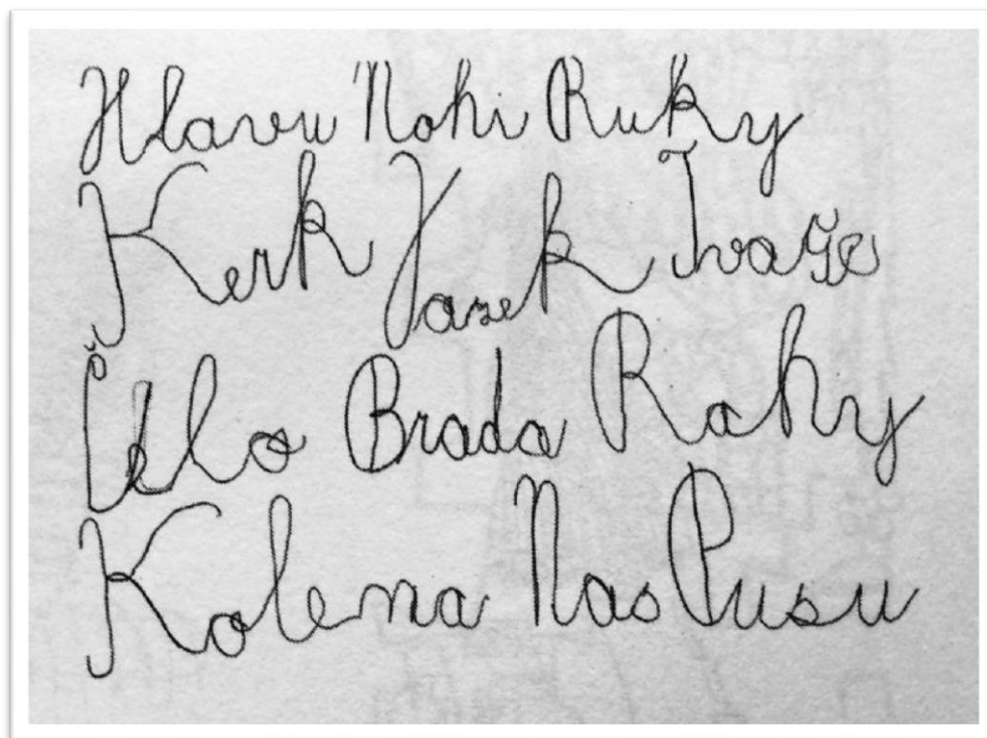 Hlavu Nohi Ruky
Kerk Jazek Tvaře
Čelo Brada Rahy
Kolena Nas Pusu